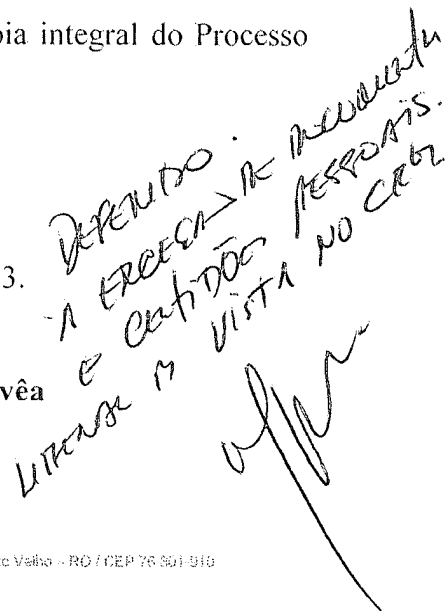 pia integral do Processo
DEFERIDO.
A EXCEÇÃO DE DOCUMENTOS
3.
E CERTIDÕES PESSOAIS.
vêa
VISTA NO
to Velho - RO / CEP 76.801-910